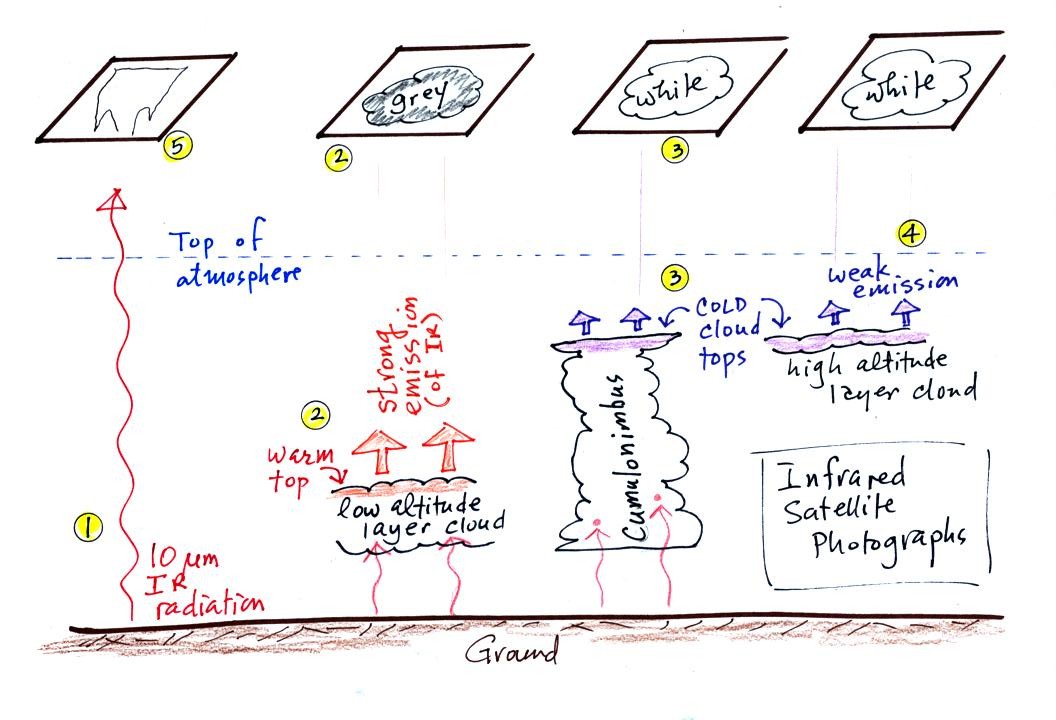 5
grey
2
white
3
white
Top of
atmosphere
4
weak
emission
3
COLD
cloud
tops
strong
emission
(of IR)
2
warm
top
low altitude
layer cloud
Cumulonimbus
high altitude
layer cloud
1
10 µm
IR
radiation
Infrared
Satellite
Photographs
Ground